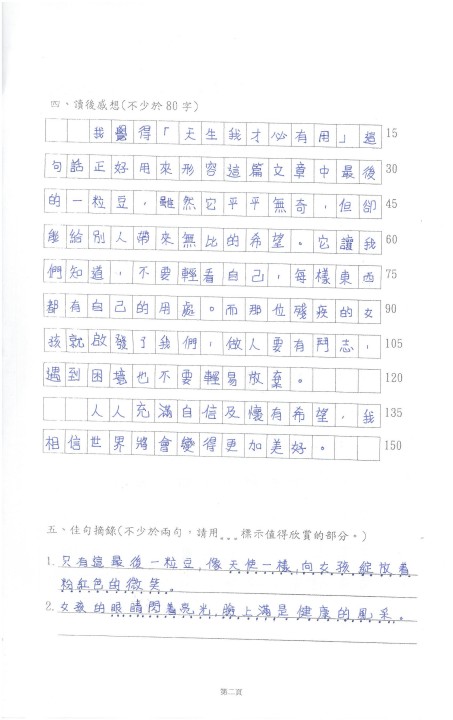 四、讀後感想(不少於80字)
我覺得「天生我才必有用」這 15
句話正好用來形容這篇文章中最後 30
的一粒豆，雖然它平平無奇，但卻 45
能給別人帶來無比的希望。它讓我 60
們知道，不要輕看自己，每樣東西 75
都有自己的用處。而那位殘疾的女 90
孩就啟發了我們，做人要有鬥志， 105
遇到困境也不要輕易放棄。 120
人人充滿自信及懷有希望，我 135
相信世界將會變得更加美好。 150
五、佳句摘錄(不少於兩句，請用...標示值得欣賞的部分。)
1. 只有這最後一粒豆，像天使一樣，向女孩綻放着
粉紅色的微笑。
2. 女孩的眼睛閃着亮光，臉上滿是健康的風采。
第二頁